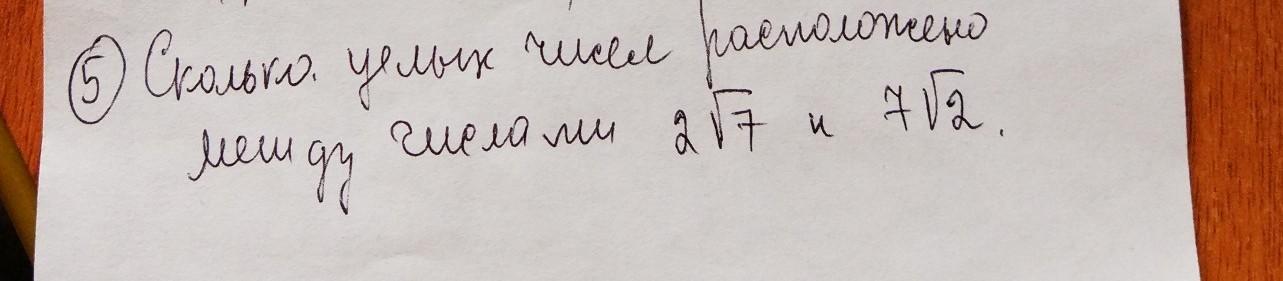 ⑤ Сколько целых чисел расположено
между числами 2√7 и 7√2.